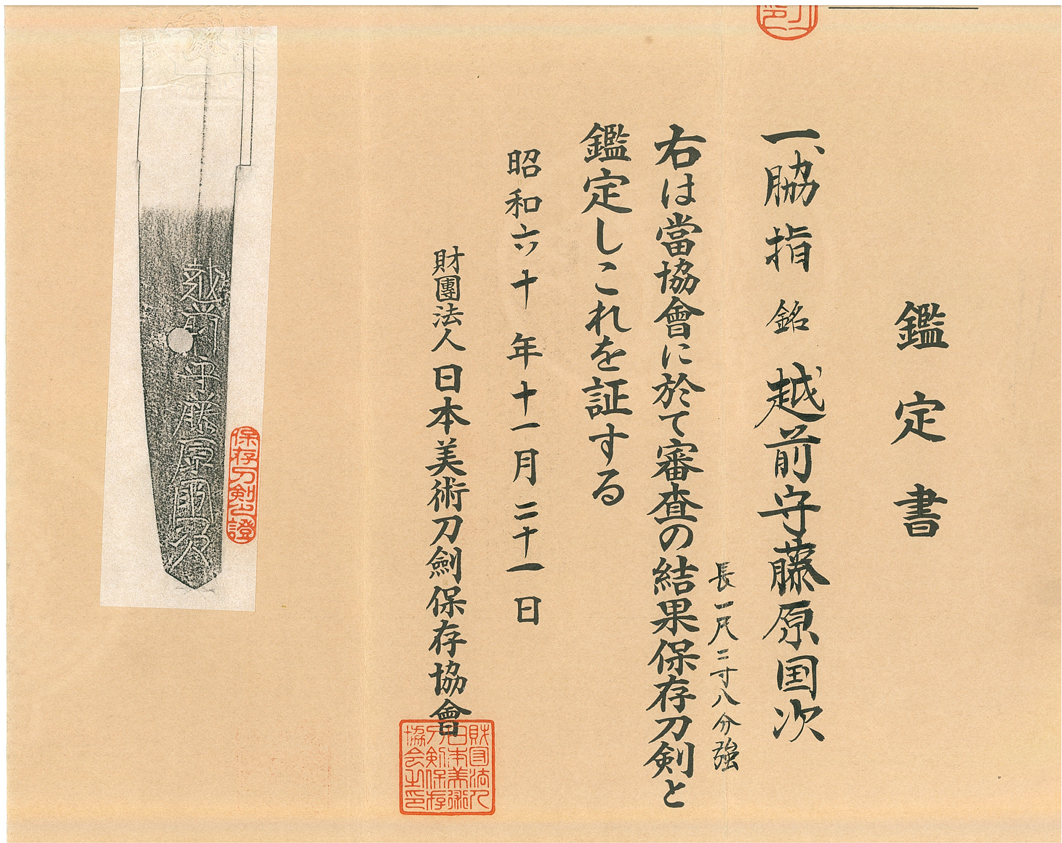 鑑定書
一、脇指 銘 越前守藤原国次
長一尺二寸八分強
右は當協會に於て審査の結果保存刀剣と
鑑定しこれを証する
昭和六十年十一月二十一日
財團法人日本美術刀劍保存協會
財団法人
日本美術
刀剣保存
協会之印
越前守藤原国次
保存刀剣之證